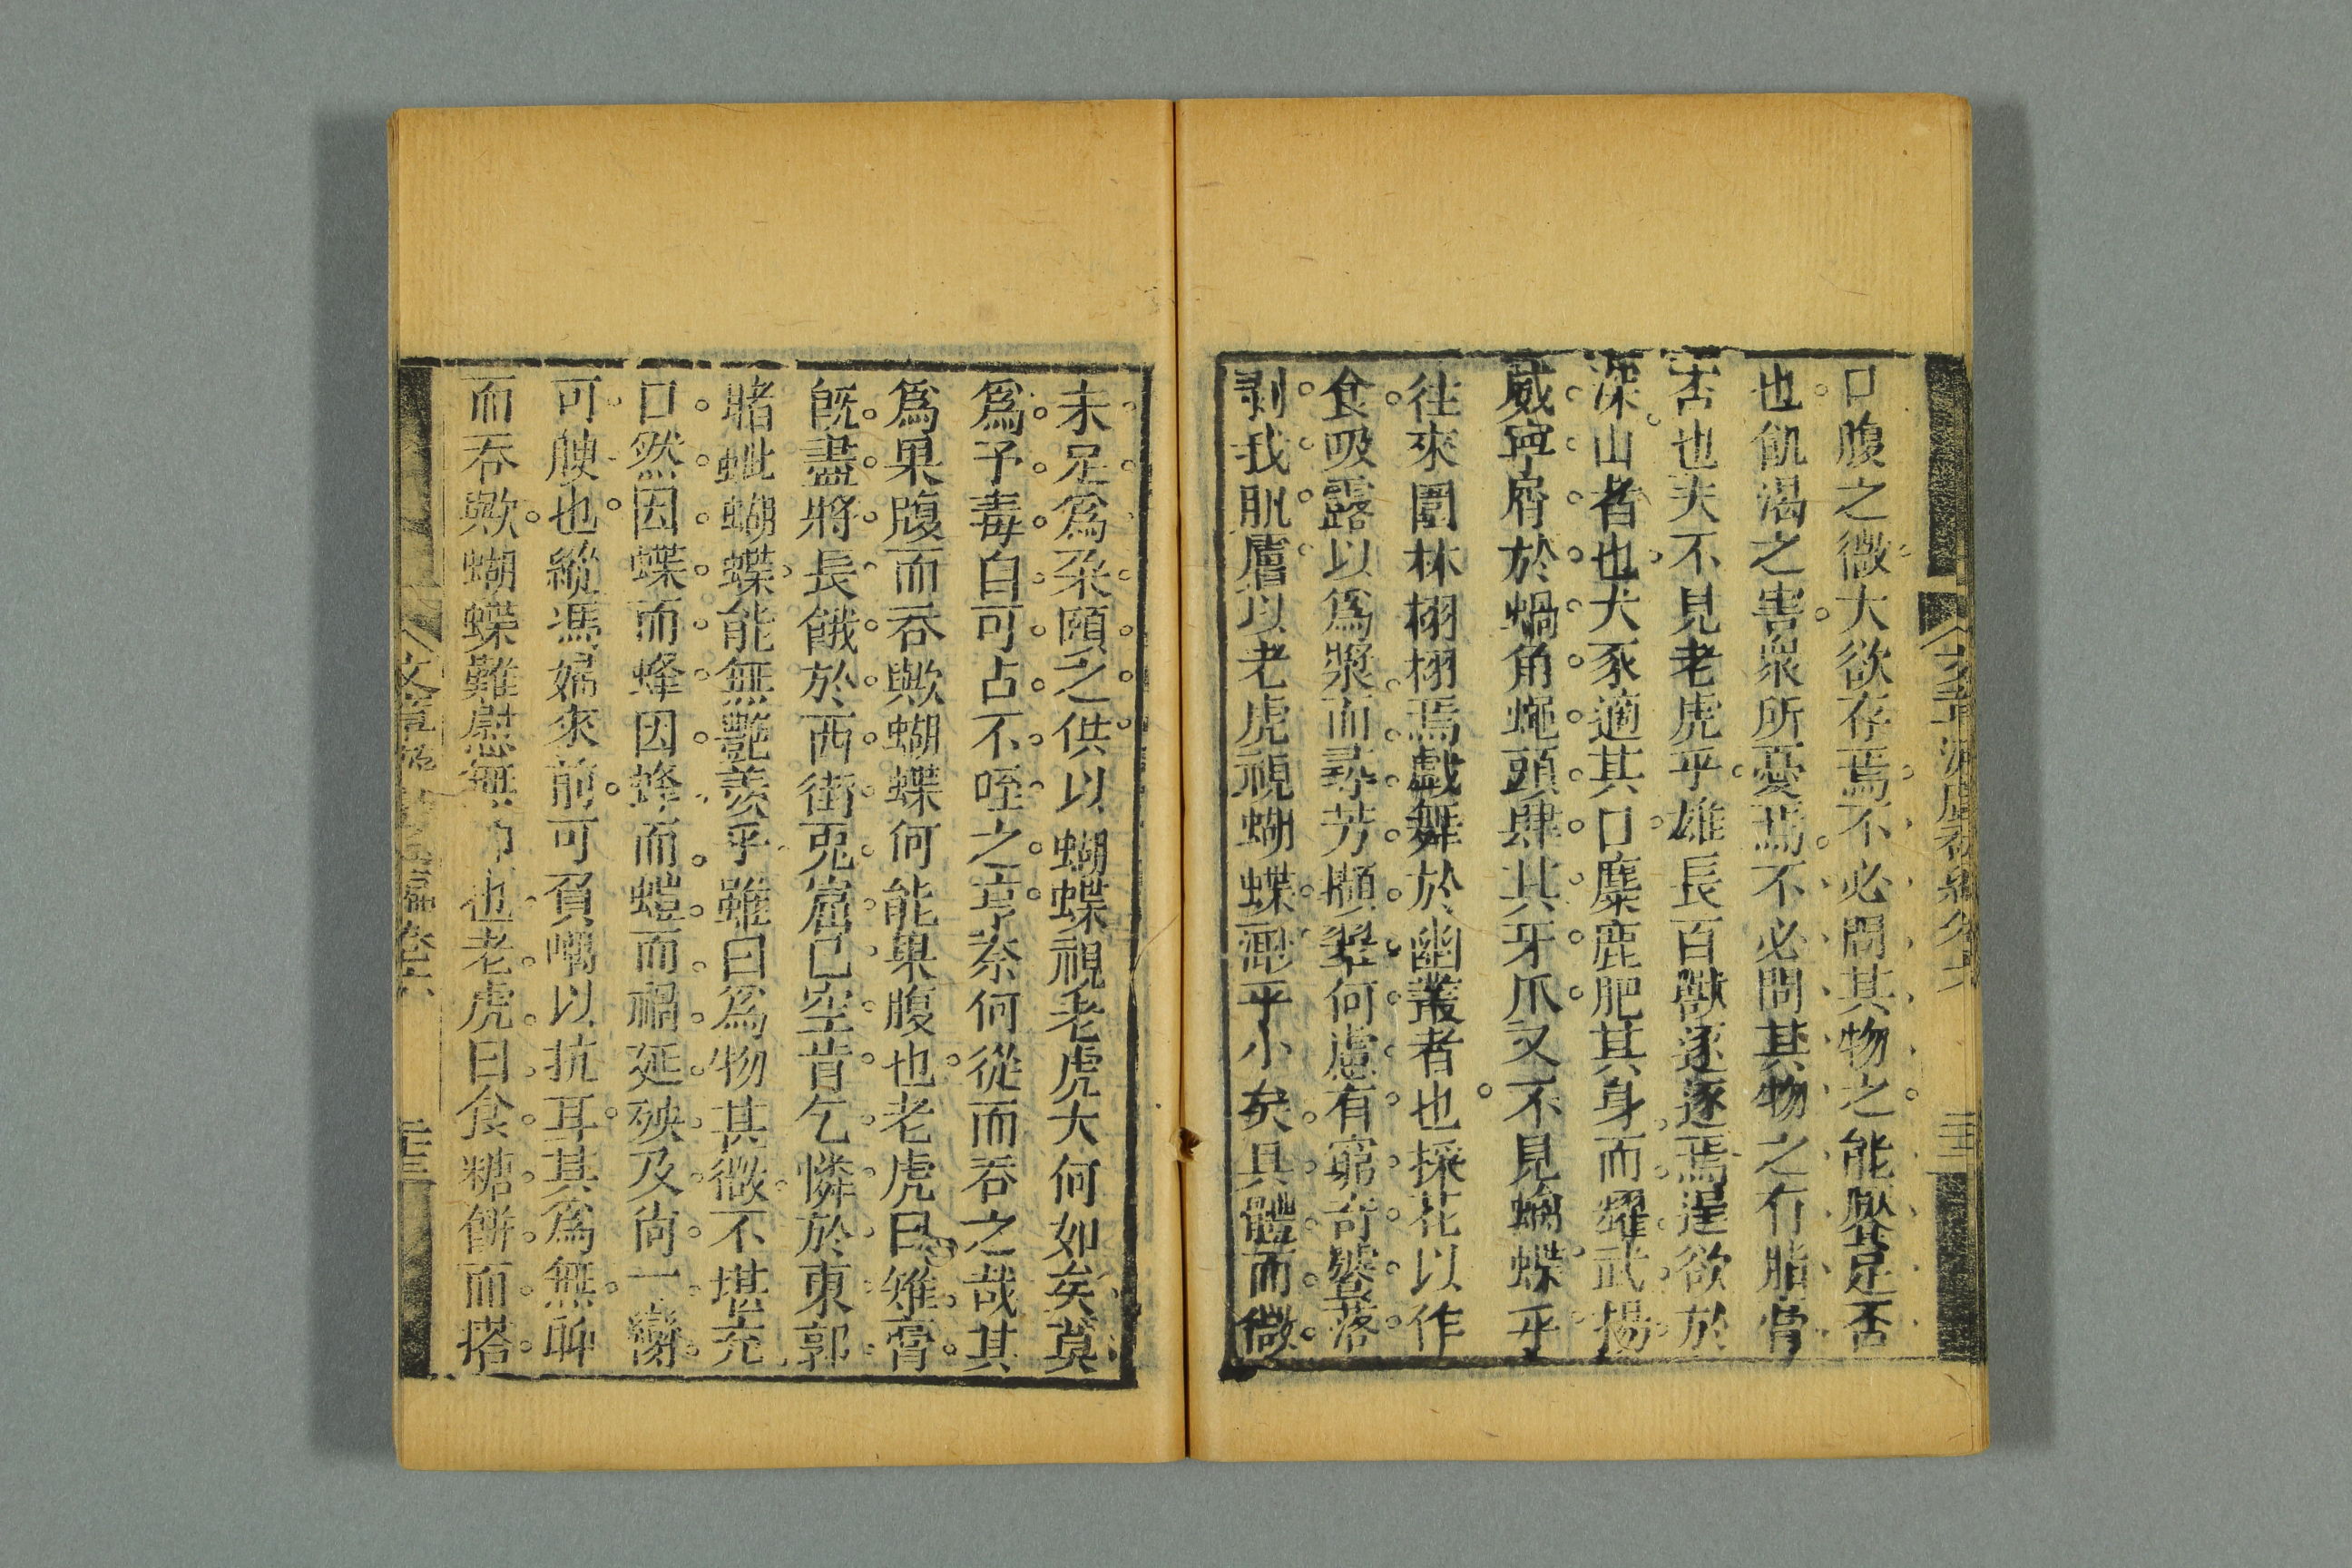 口腹之微大欲存焉不必問其物之能饜足否
也飢渴之害衆所憂焉不必問其物之有脂膏
否也夫不見老虎乎雄長百獸逐逐焉逞欲於
深山者也犬豕適其口麋鹿肥其身而耀武揚
威寧屑於蝸角蠅頭肆其牙爪又不見蝴蝶乎
往來園林栩栩焉戲舞於幽叢者也採花以作
食吸露以爲漿而尋芳擷翠何慮有窮奇饕落
剥我肌膚以老虎視蝴蝶渺乎小矣具體而微
未足爲朶頤之供以蝴蝶視老虎大何如矣莫
爲予毒自可占不咥之亨柰何從而吞之哉其
爲果腹而吞歟蝴蝶何能果腹也老虎曰雉膏
旣盡將長餓於西街兎窟已空肯乞憐於東郭
睹蚍蝴蝶能無艷羨乎雖曰爲物甚微不堪充
口然因蝶而蜂因蜂而螘而禍延殃及尙一臠
可餿也縱馮婦來前可負嵎以抗耳其爲無聊
而吞歟蝴蝶難慰無 也老虎曰食糖餅而搭
文章 卷六